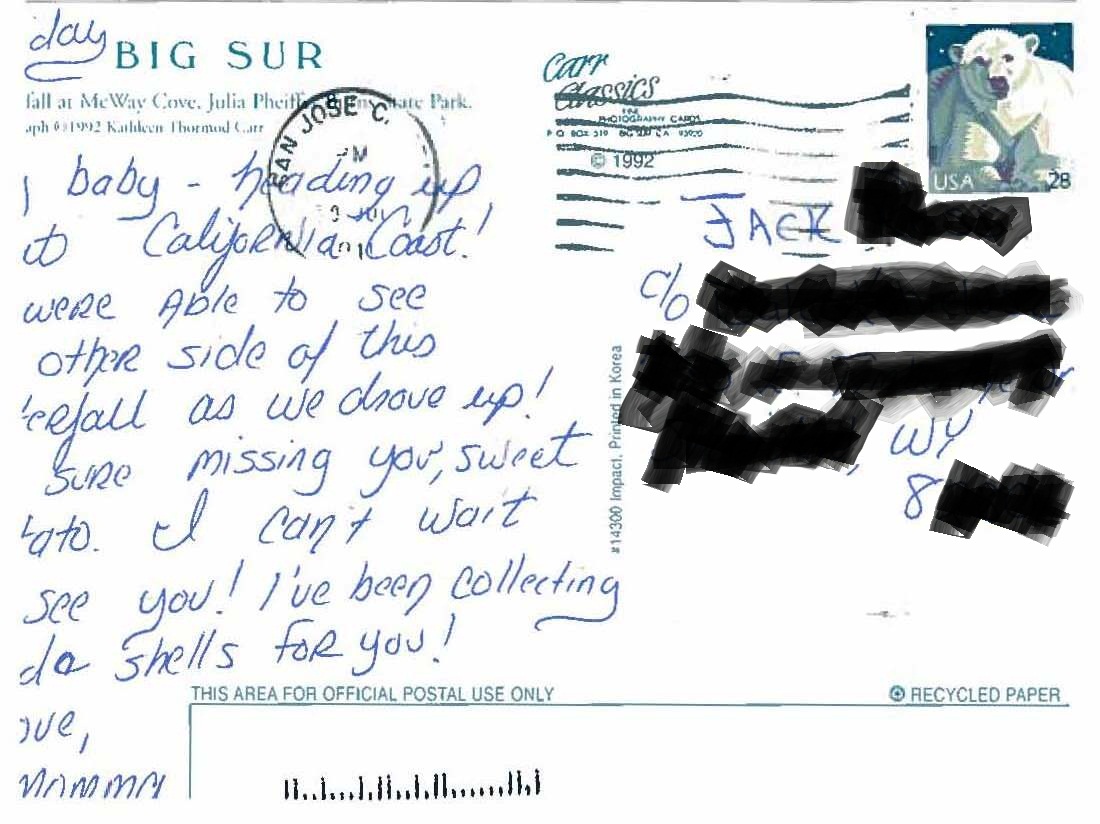 day
BIG SUR
fall at McWay Cove, Julia Pfeiffer Burns State Park.
aph ©1992 Kathleen Thormod Carr
Carr
Classics
FINE
PHOTOGRAPHY CARDS
P O BOX 519 BIG SUR CA 93920
© 1992
SAN JOSE C.
USA 28
baby - heading up
California Coast!
were Able to see
other side of this
erfall as we drove up!
Sure missing you, sweet
ato. I can't wait
see you! I've been collecting
shells for you!
ove,
MAMMA
JACK
c/o
, WY
8
#14300 Impact, Printed in Korea
THIS AREA FOR OFFICIAL POSTAL USE ONLY
RECYCLED PAPER